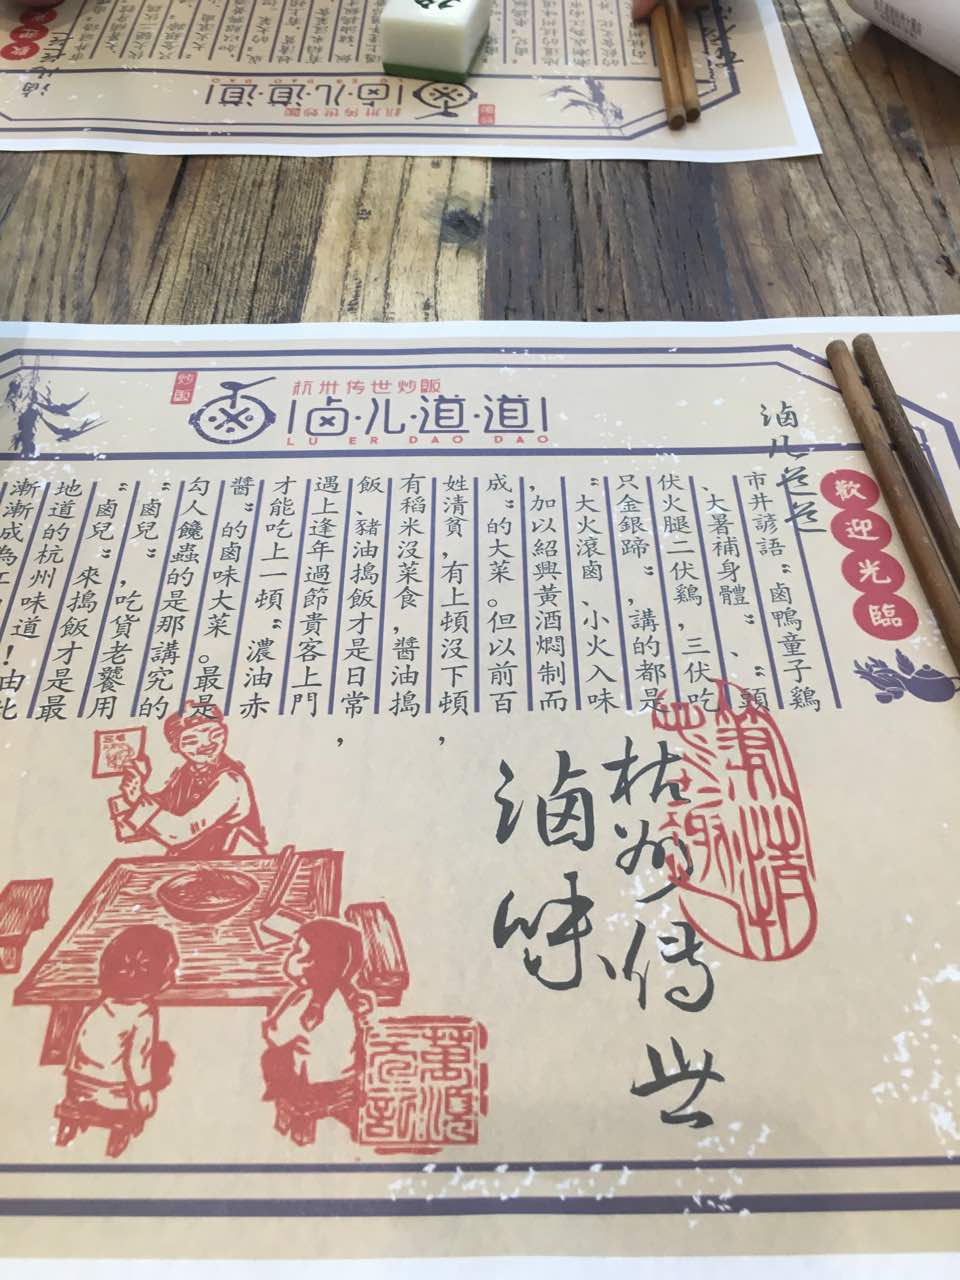 炒飯
杭州传世炒飯
卤·儿·道·道
LU ER DAO DAO
滷儿道道
歡迎光臨
市井諺語“鹵鴨童子鷄
、大暑補身體”、“頭
伏火腿二伏鷄,三伏吃
只金銀蹄”,講的都是
“大火滾鹵、小火入味
,加以紹興黃酒燜制而
成”的大菜。但以前百
姓清貧,有上頓沒下頓,
有稻米沒菜食,醬油搗
飯、豬油搗飯才是日常,
遇上逢年過節貴客上門
才能吃上一頓“濃油赤
醬”的鹵味大菜。最是
勾人饞蟲的是那講究的
“鹵兒”,吃貨老饕用
“鹵兒”來搗飯才是最
地道的杭州味道!由此
漸漸成為
杭州傳世
滷味